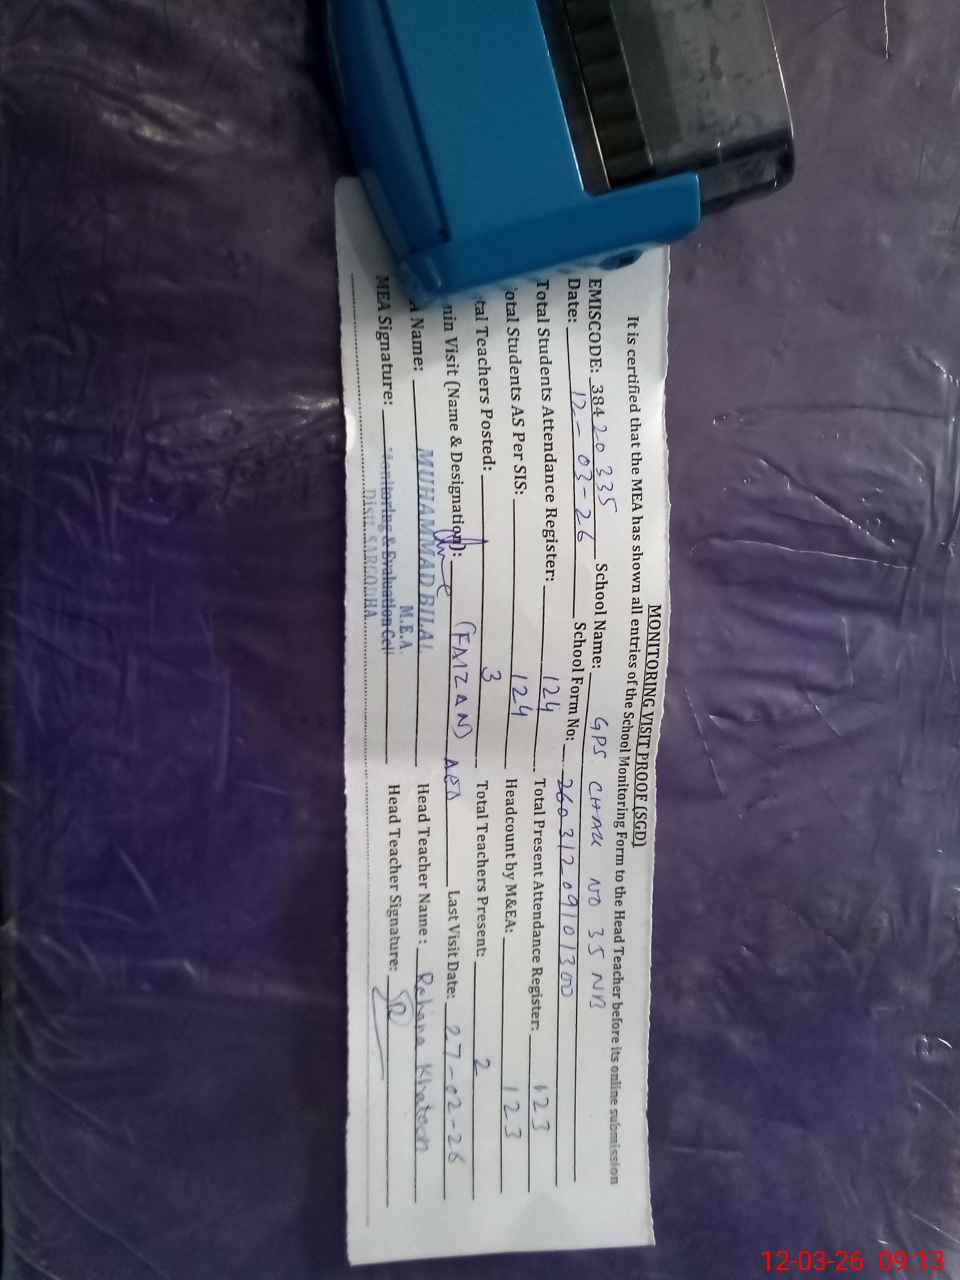 MONITORING VISIT PROOF (SGD)
It is certified that the MEA has shown all entries of the School Monitoring Form to the Head Teacher before its online submission
EMISCODE: 38420335 School Name: GPS CHAK NO 35 NB
Date: 12-03-26 School Form No: 26031209101300
Total Students Attendance Register: 124 Total Present Attendance Register: 123
otal Students AS Per SIS: 124 Headcount by M&EA: 123
tal Teachers Posted: 3 Total Teachers Present: 2
min Visit (Name & Designation): (FAIZAN) AEO Last Visit Date: 27-02-26
A Name: MUHAMMAD BILAL Head Teacher Name: Rehana Khatoon
MEA Signature: Head Teacher Signature:
M.E.A.
Monitoring & Evaluation Cell
Distt. SARGODHA
12-03-26 09:13